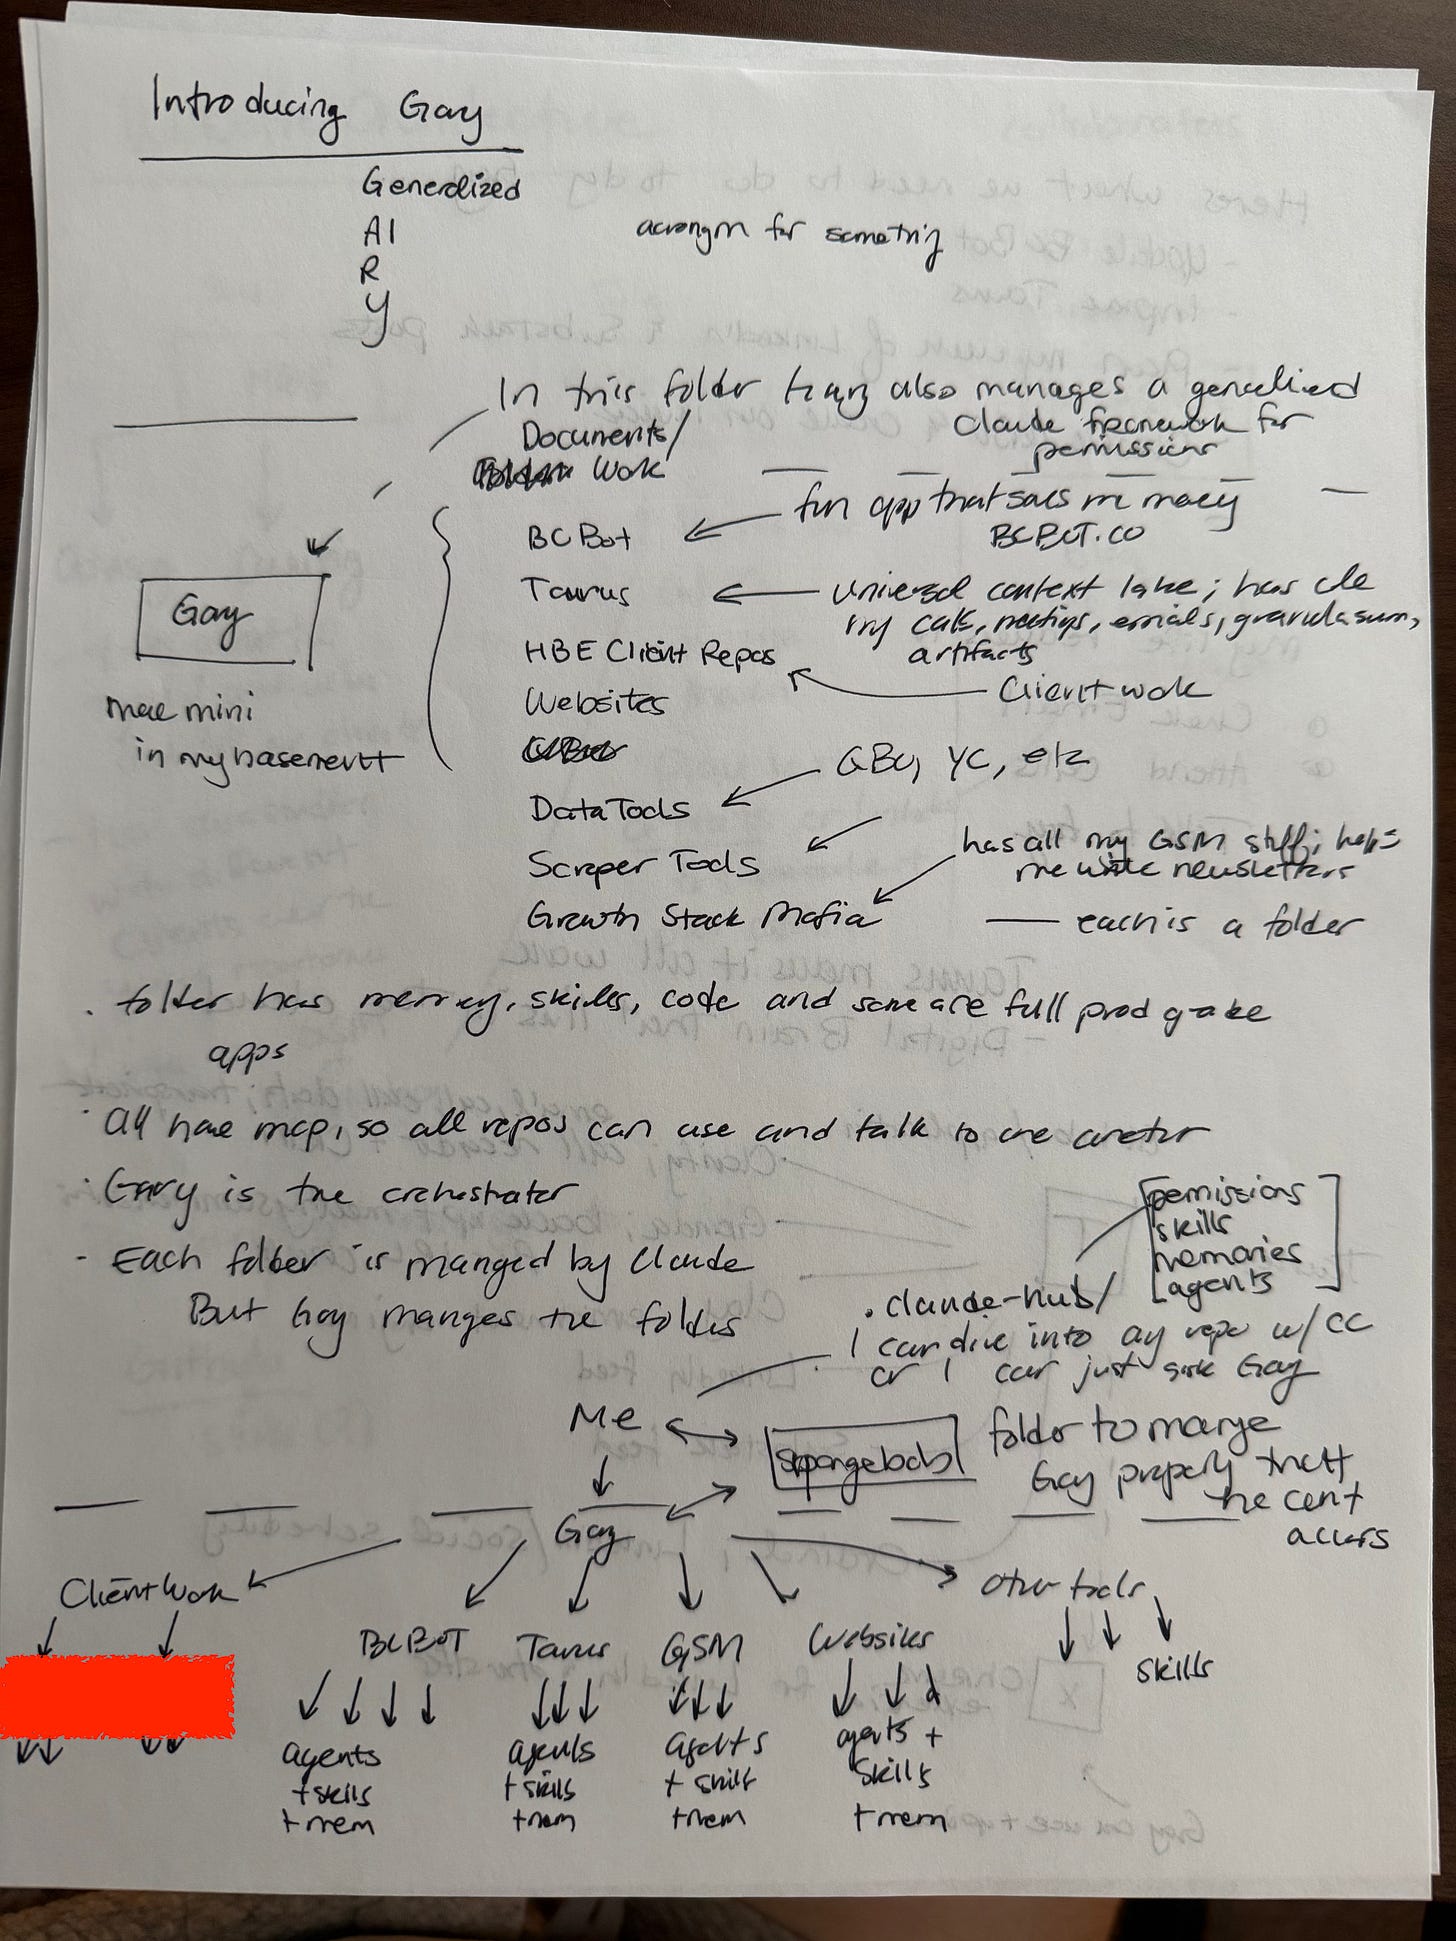 Introducing Gary
Generalized
AI
R
Y
acronym for something
In this folder Gary also manages a generalized
Claude framework for
permissions
Documents/
Work
BCBot
fun app that saves me money
BCBOT.CO
Taurus
Universal context lake; has all
my calls, meetings, emails, granola sum,
artifacts
HBE Client Repos
Client work
Websites
Gary
mac mini
in my basement
Data Tools
GBQ, YC, etc
Scraper Tools
has all my GSM stuff; helps
me write newsletters
Growth Stack Mafia
each is a folder
. folder has memory, skills, code and some are full prod grade
apps
· All have mcp, so all repos can use and talk to one another
· Gary is the orchestrator
- Each folder is manged by Claude
But Gary manges the folders
permissions
skills
memories
agents
.claude-hub/
I can dive into any repo w/ CC
or I can just ask Gary
Me
spongebob
folder to manage
Gary properly that
he cent
accurs
Gary
Client Work
other tools
BCBOT
Taurus
GSM
Websites
skills
agents
+ skills
+ mem
agents
+ skills
+ mem
agents
+ skills
+ mem
agents +
skills
+ mem